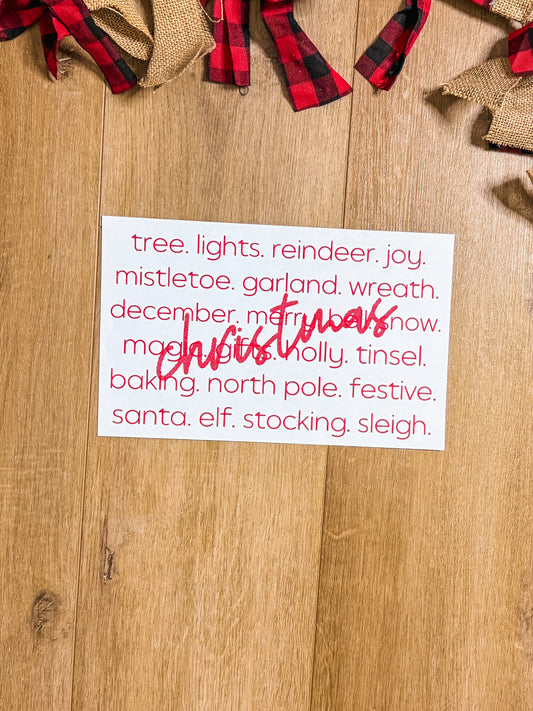 tree. lights. reindeer. joy.
mistletoe. garland. wreath.
december. merry. bell. snow.
magic. gifts. holly. tinsel.
christmas
baking. north pole. festive.
santa. elf. stocking. sleigh.